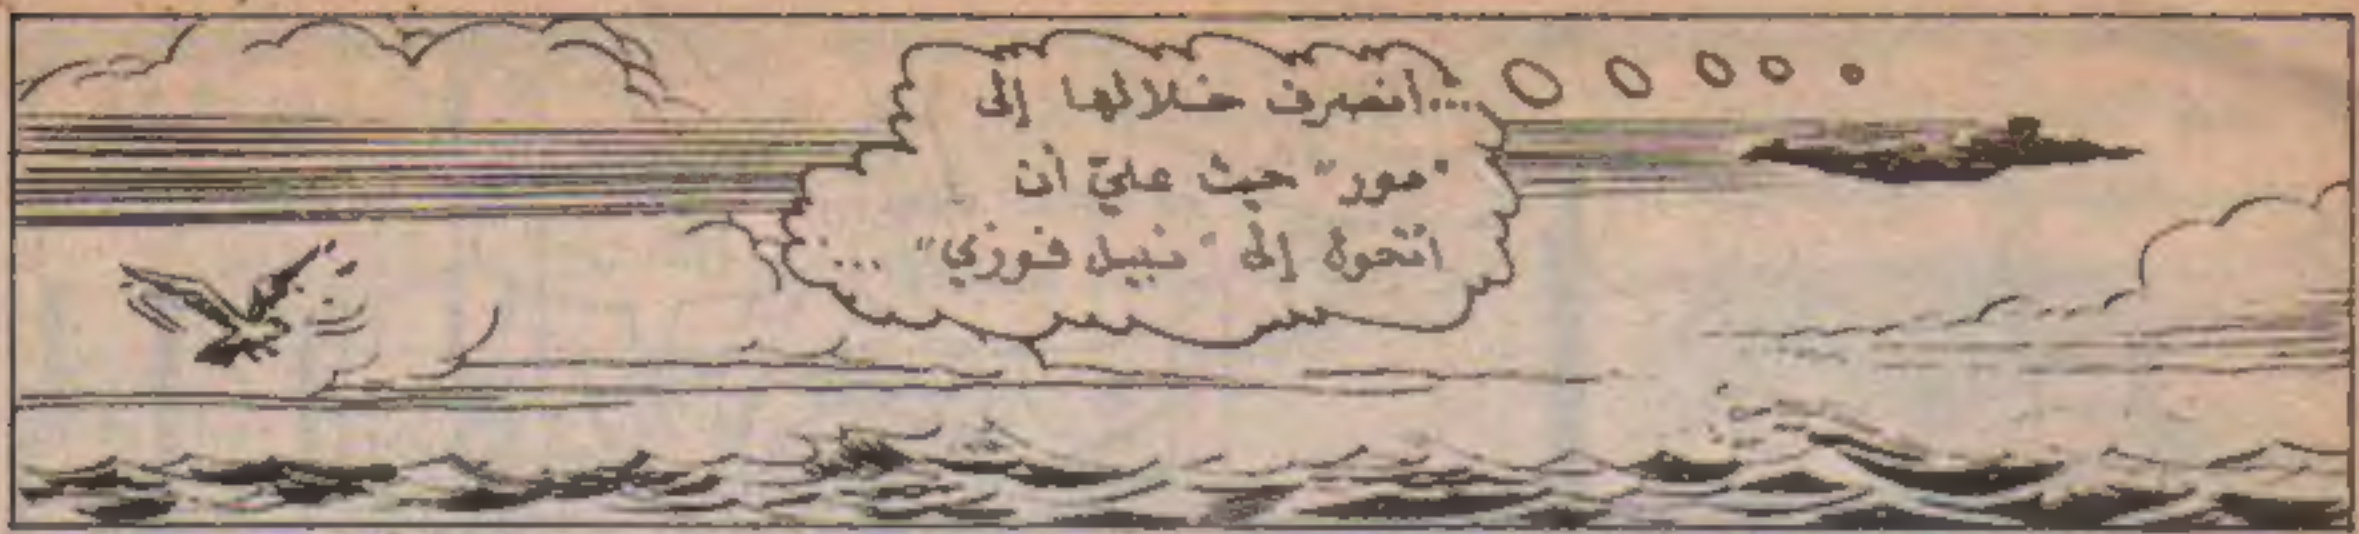 ...أنصرف خلالها إلى
"صور" حيث عليّ أن
أتحول إلى "نبيل فوزي" ...